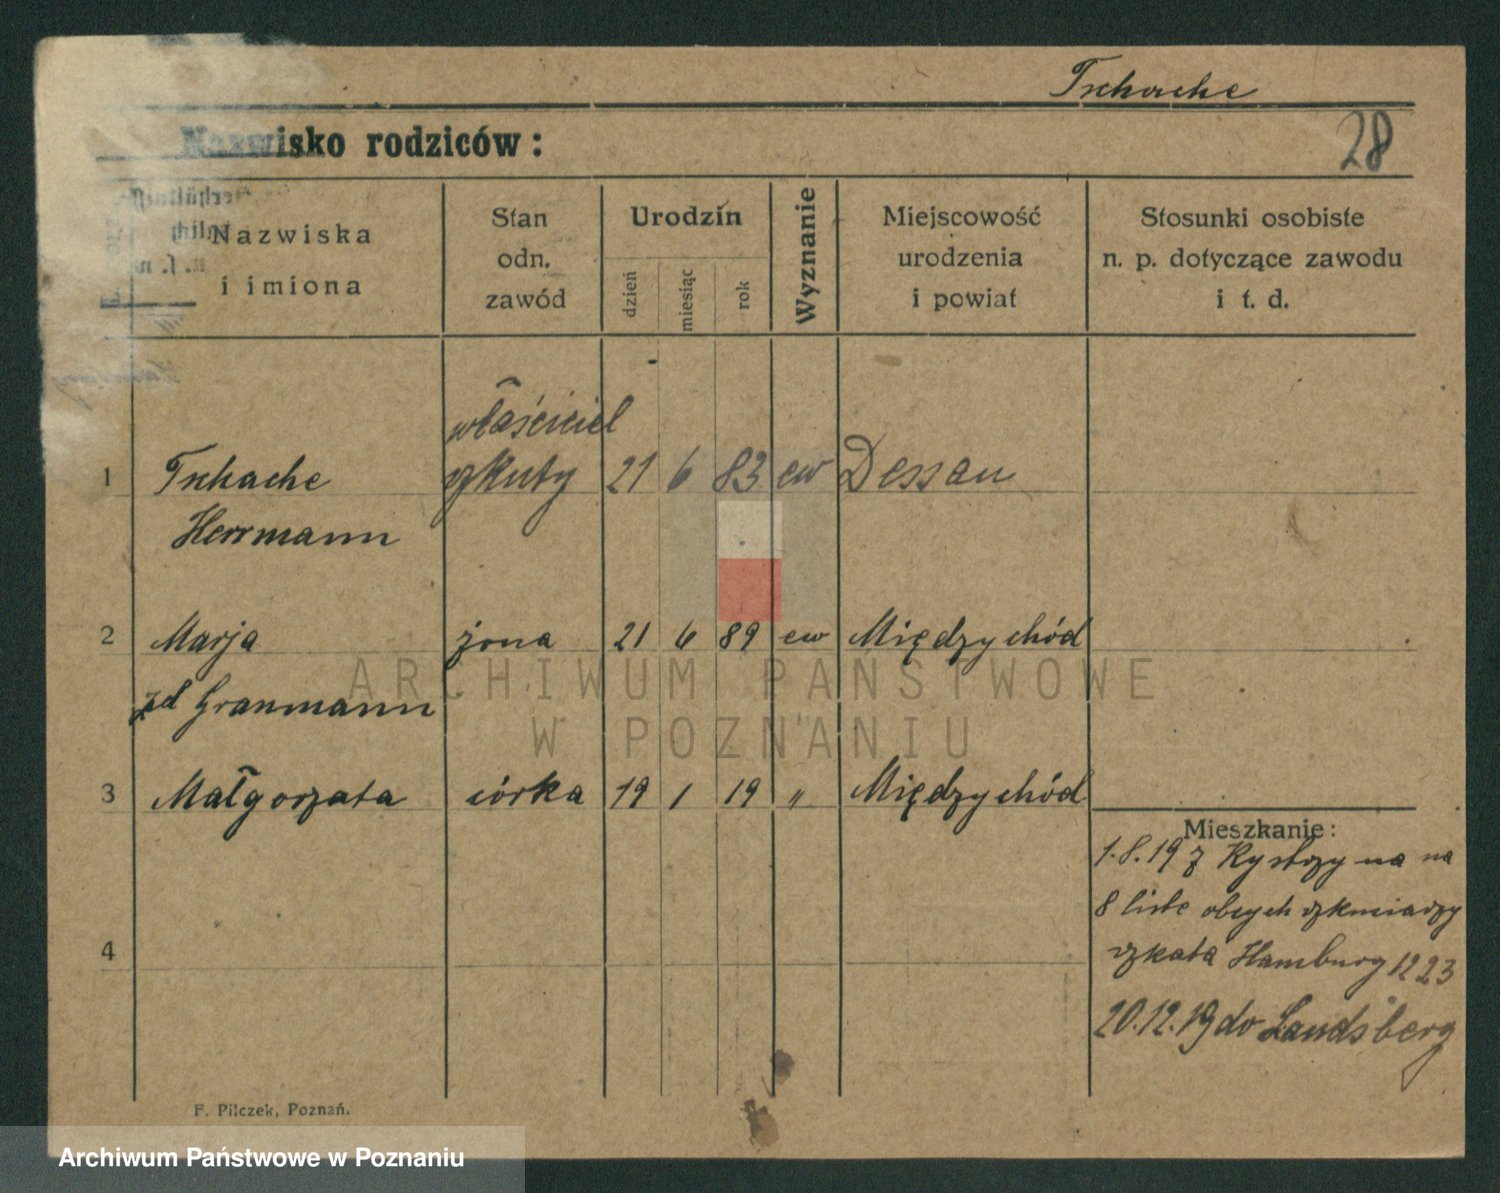 Tschache
28
Nazwisko rodziców:
Nazwiska
i imiona
Stan
odn.
zawód
Urodzin
dzień
miesiąc
rok
Wyznanie
Miejscowość
urodzenia
i powiat
Stosunki osobiste
n. p. dotyczące zawodu
i t. d.
właściciel
1 Tschache szkuty 21 6 83 ew Dessau
Herrmann
2 Marja żona 21 6 89 ew Międzychód
zd Graumann
3 Małgorzata córka 19 1 19 " Międzychód
Mieszkanie:
1.8.19 z Kystrzyna na
8 liste obcych
Hamburg 1223
4
20.12.19 do Landsberg
F. Pilczek, Poznań.
ARCHIWUM PAŃSTWOWE
W POZNANIU
Archiwum Państwowe w Poznaniu